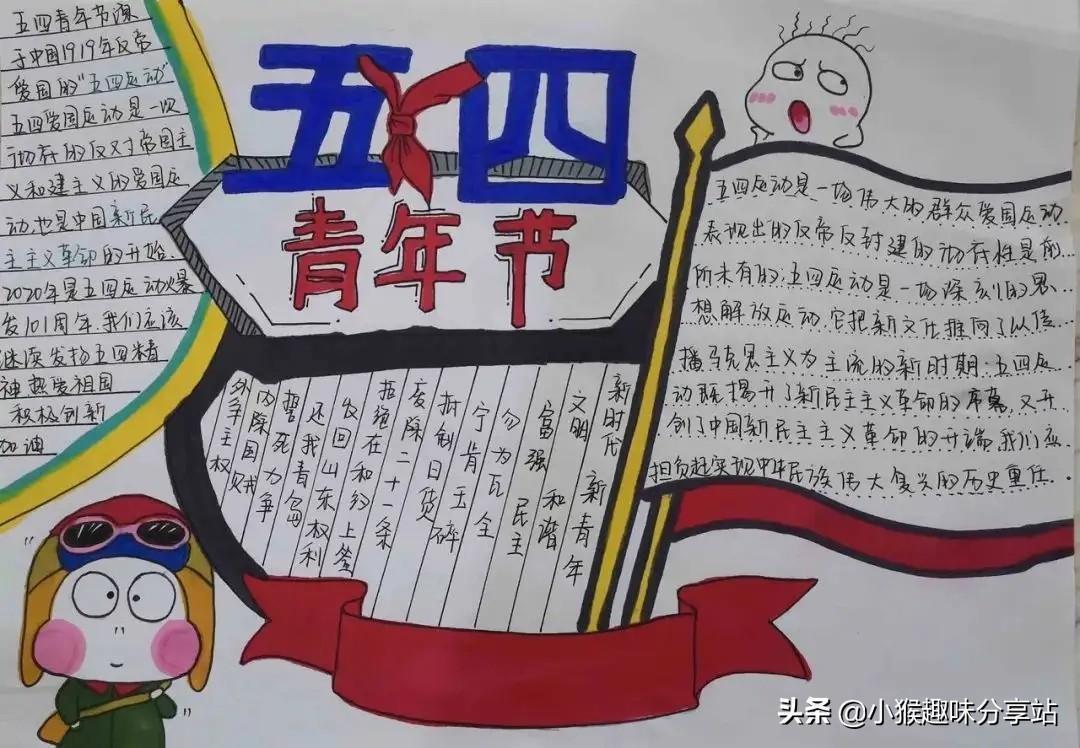 五四青年节源
于中国1919年反帝
爱国的"五四运动"
五四爱国运动是一次
彻底的反对帝国主
义和建主义的爱国运
动也是中国新民
主主义革命的开始.
2020年是五四运动爆
发101周年.我们应该
继续发扬五四精
神热爱祖国
积极创新
加油
五四
青年节
新时代 新青年
文明 和谐
富强 民主
勿为瓦全
宁肯玉碎
抵制日货
废除二十一条
拒绝在和约上签
发回山东权利
还我青岛
誓死力争
内除国贼
外争主权
五四运动是一场伟大的群众爱国运动.
表现出的反帝反封建的彻底性是前
所未有的.五四运动是一场深刻的思
想解放运动.它把新文化推向了以传
播马克思主义为主流的新时期.五四运
动既揭开了新民主主义革命的序幕,又开
创了中国新民主主义革命的开端.我们应
担负起实现中华民族伟大复兴的历史重任.
头条 @小猴趣味分享站